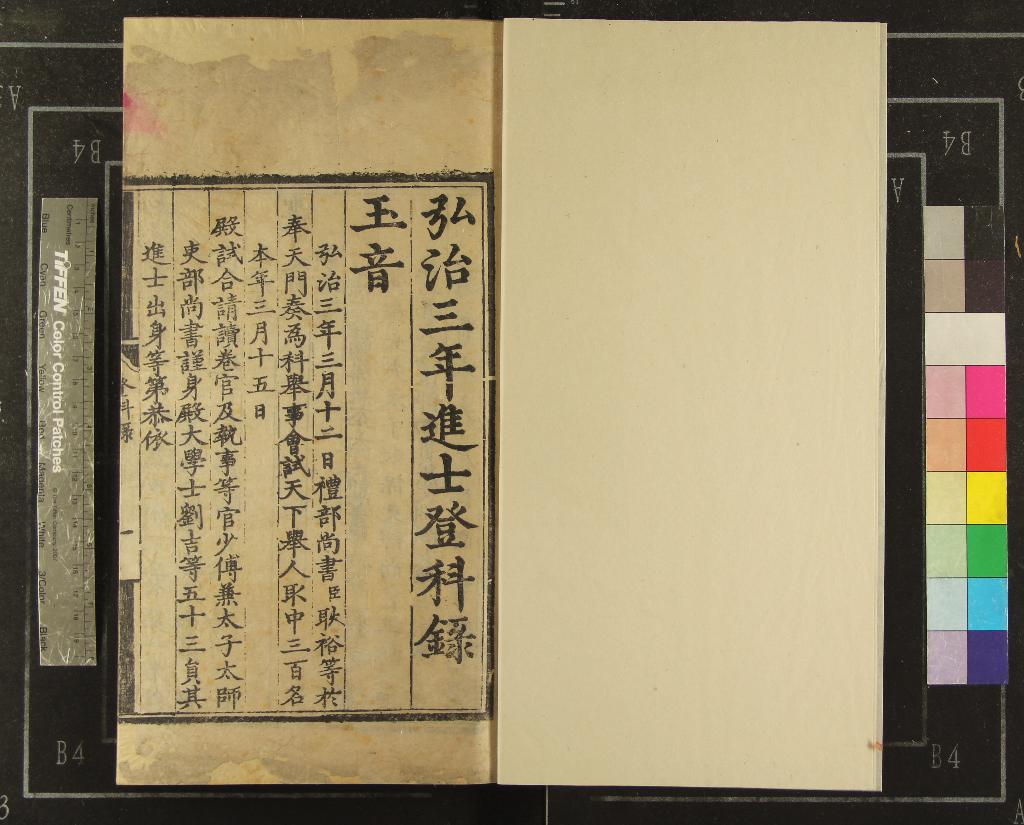 弘治三年進士登科錄
玉音
弘治三年三月十二日禮部尚書臣耿裕等於
奉天門奏為科舉事會試天下舉人取中三百名
本年三月十五日
殿試合請讀卷官及執事等官少傅兼太子太師
吏部尚書謹身殿大學士劉吉等五十三員其
進士出身等第恭依
登科錄
一
TIFFEN Color Control Patches
Centimetres
Inches
Blue
Cyan
Green
Yellow
Red
Magenta
White
3/Color
Black
B4
B4
B4
B4
A3
A
B
3
A